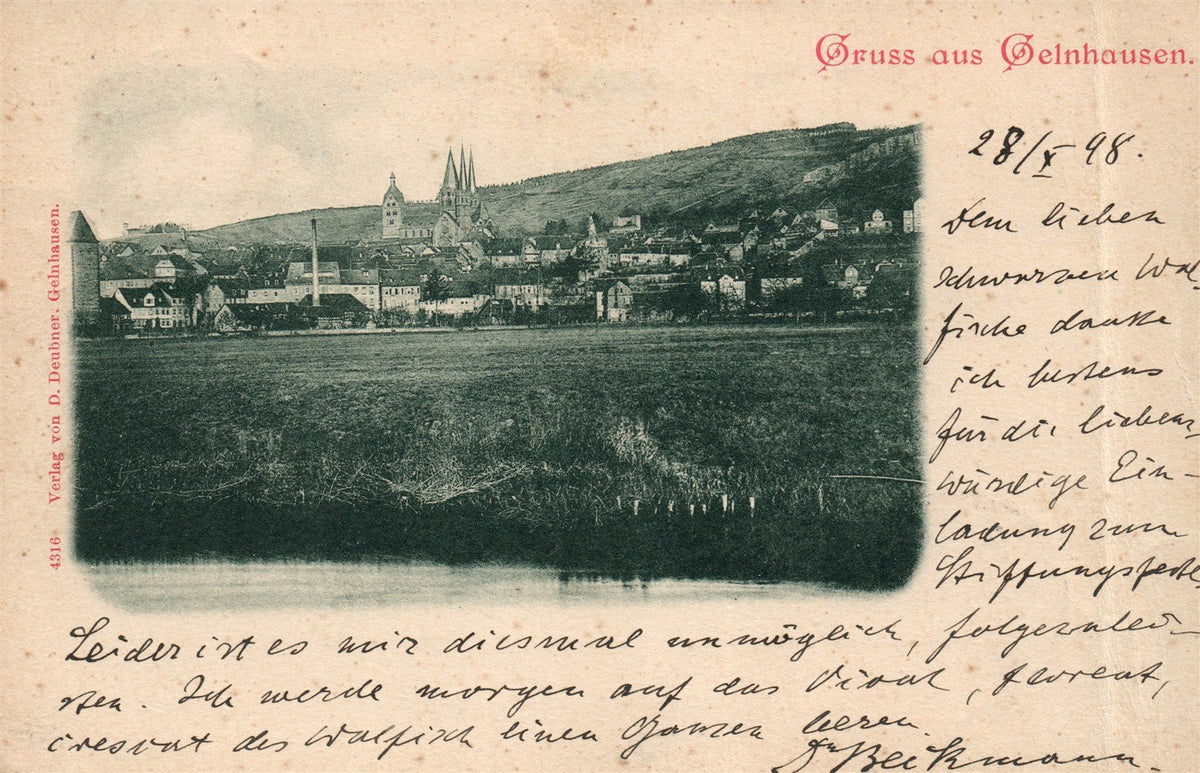 Gruss aus Gelnhausen.
28/X 98.
Dem lieben
schwarzen Wal-
fische danke
ich bestens
für die liebens-
würdige Ein-
ladung zum
Stiftungsfeste
Leider ist es mir diesmal unmöglich, folgezulei-
sten. Ich werde morgen auf das Vivat, floreat,
crescat des Walfisch einen Ganzen leeren.
Dr Beckmann.
4316 Verlag von D. Deubner, Gelnhausen.